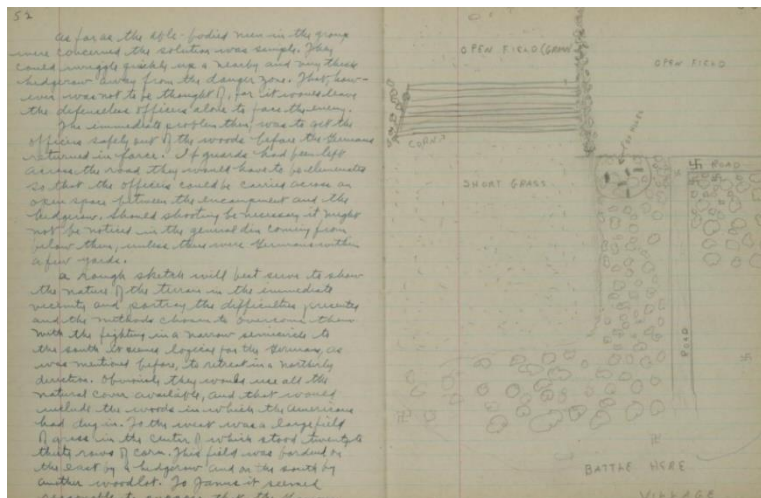 52
As far as the able-bodied men in the group
were concerned the solution was simple. They
could wriggle quickly up a nearby and very thick
hedgerow away from the danger zone. That, how-
ever was not to be thought of, for it would leave
the defenseless officers alone to face the enemy.
The immediate problem then was to get the
officers safely out of the woods before the Germans
returned in force. If guards had been left
across the road they would have to be eliminated
so that the officers could be carried across an
open space between the encampment and the
hedgerow. Should shooting be necessary it might
not be noticed in the general din coming from
below them, unless there were Germans within
a few yards.
A rough sketch will best serve to show
the nature of the terrain in the immediate
vicinity and portray the difficulties presented
and the methods chosen to overcome them
With the fighting in a narrow semicircle to
the south it seemed logical for the Germans, as
was mentioned before, to retreat in a northerly
direction. Obviously they would use all the
natural cover available, and that would
include the woods in which the Americans
had dug in. To the west was a large field
of grass in the center of which stood twenty to
thirty rows of corn. This field was bordered on
the east by a hedgerow and on the south by
another woodlot. To James it seemed
OPEN FIELD (GRASS)
OPEN FIELD
CORN
SHORT GRASS
ROAD
ROAD
BATTLE HERE
VILLAGE